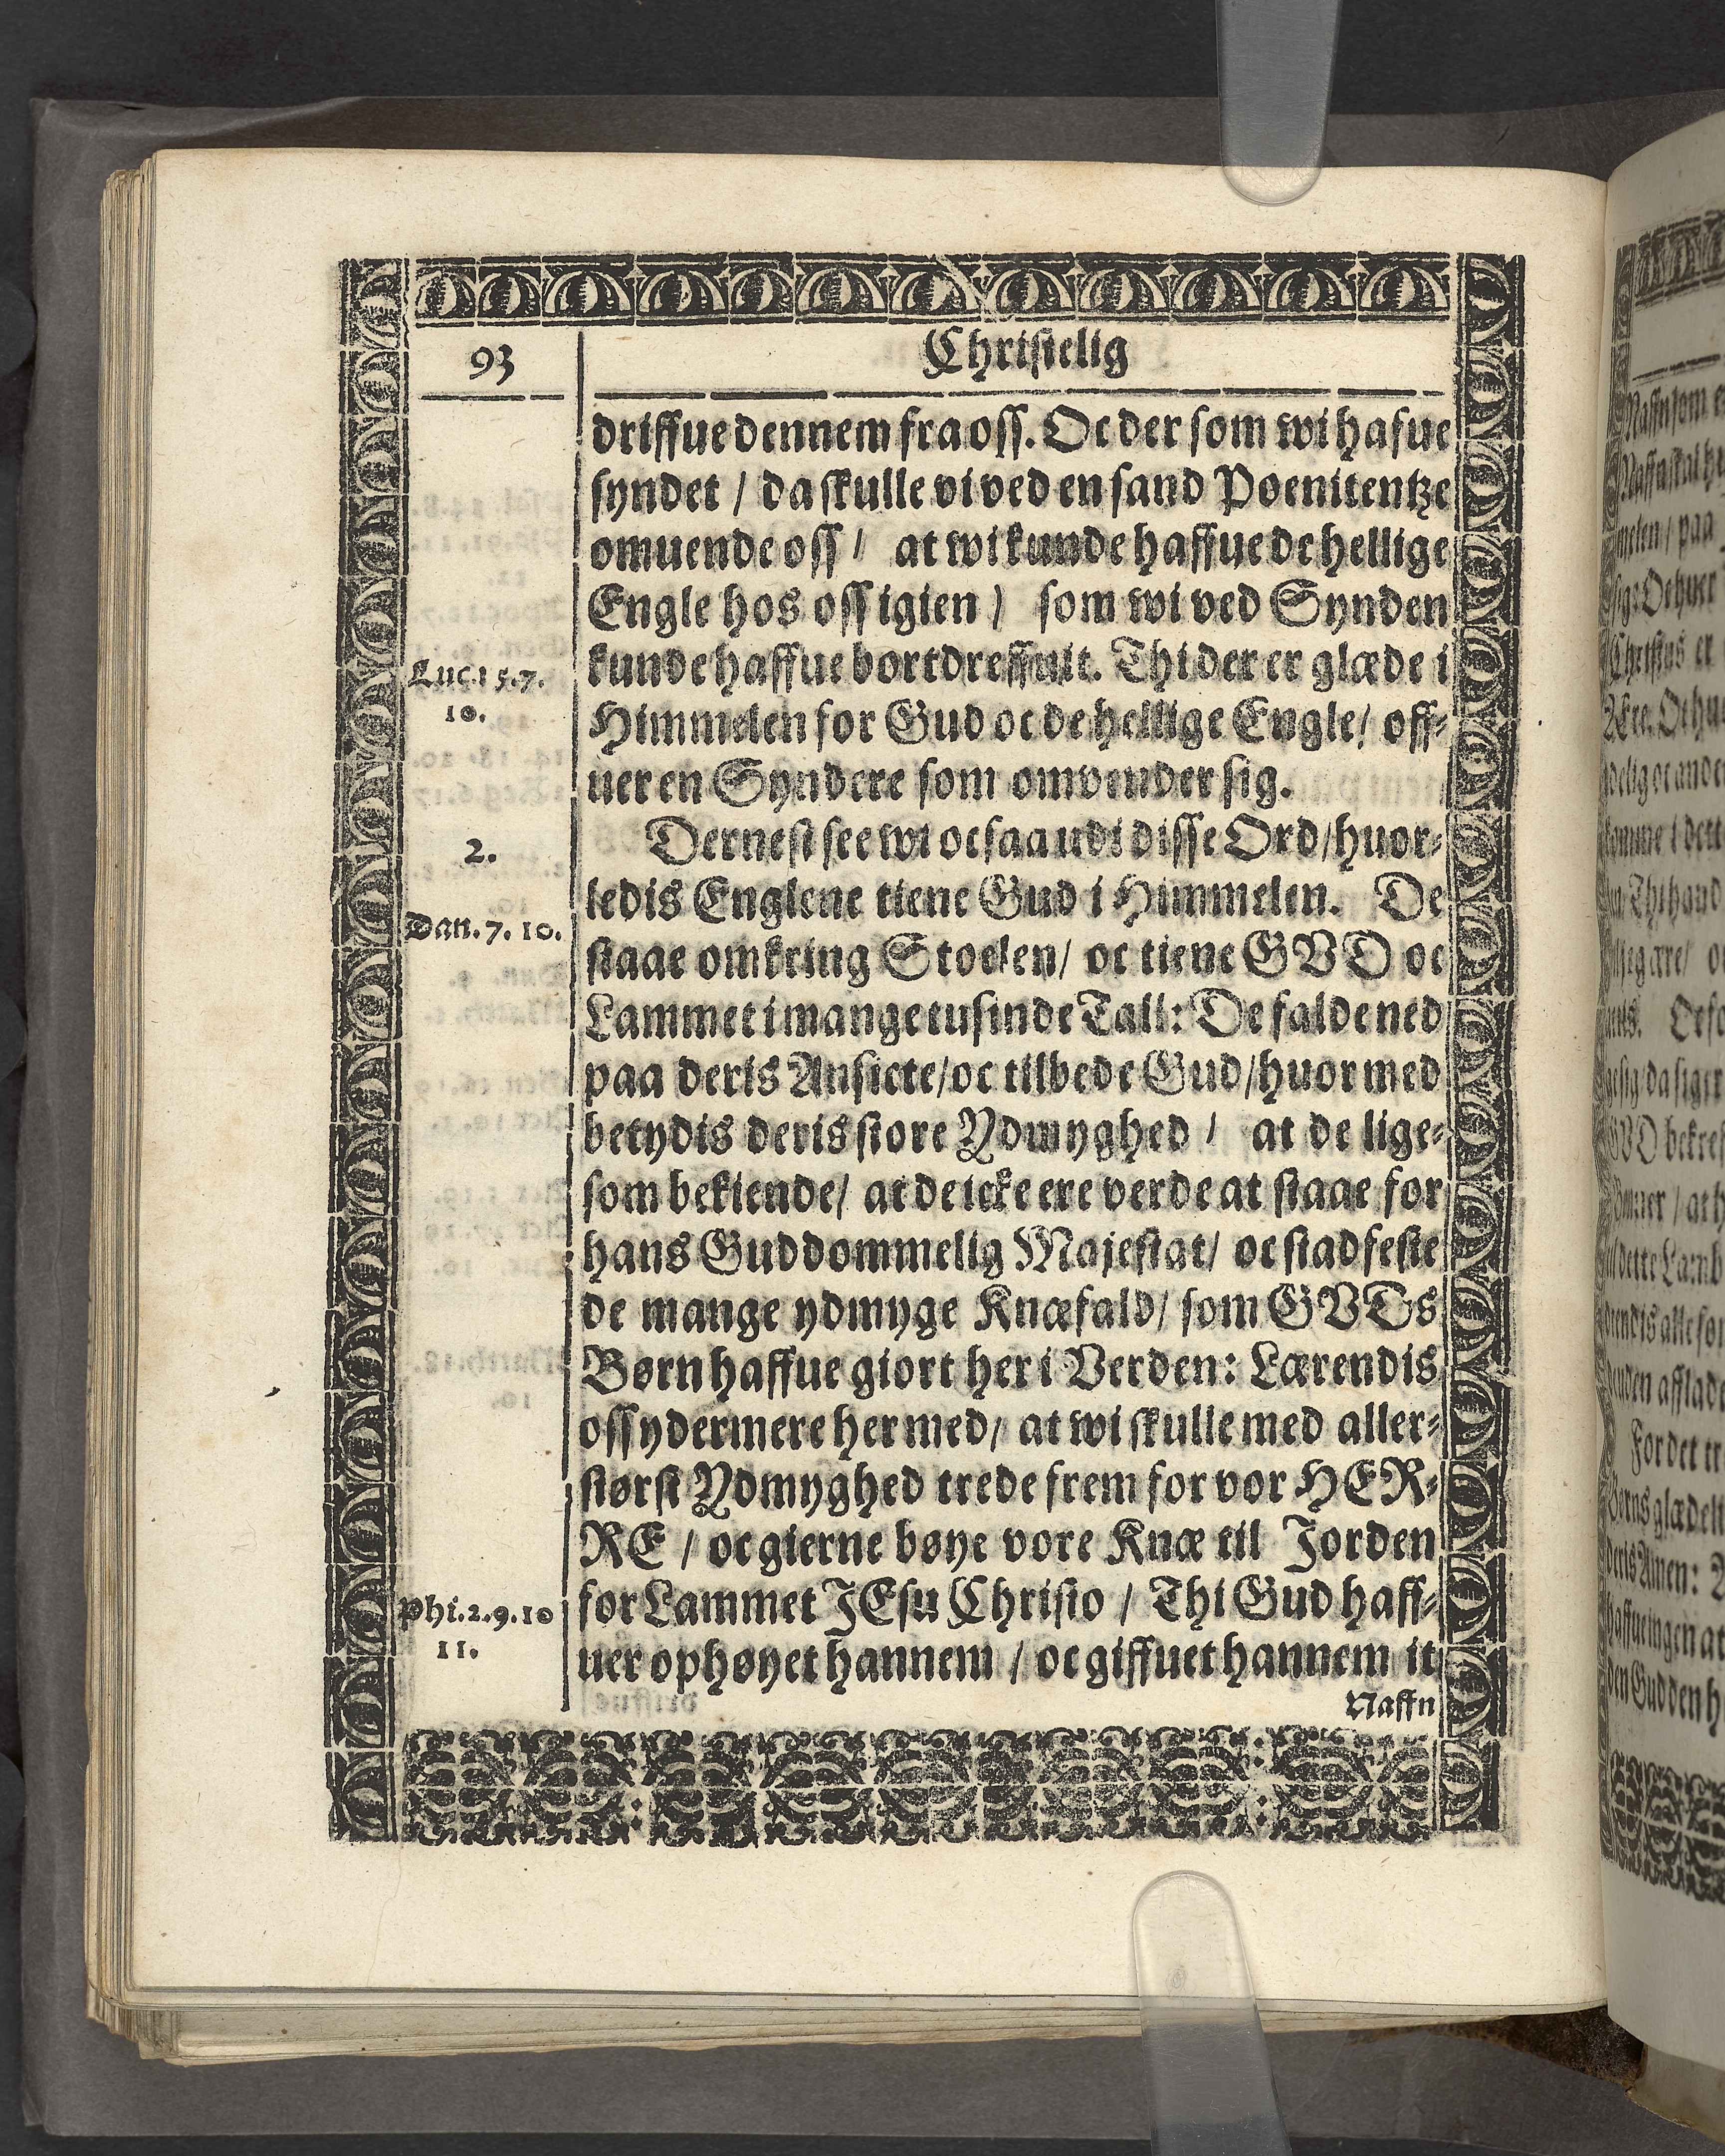 93
Christelig
driffue dennem fra oss. Oc der som wi hafue
syndet / da skulle vi ved en sand Poenitentze
omuende oss / at wi kunde haffue de hellige
Engle hos oss igien / som wi ved Synden
kunde haffue bortdreffuit. Thi der er glæde i
Luc.15.7.
10.
Himmelen for Gud oc de hellige Engle / off-
uer en Syndere som omvender sig.
2.
Dernest see wi ocsaa udi disse Ord / huor-
ledis Englene tiene Gud i Himmelen. De
Dan.7.10.
staae omkring Stoelen / oc tiene GVD oc
Lammet i mange tusinde Tall: De falde ned
paa deris Ansicte / oc tilbede Gud / huor med
betydis deris store Ydmyghed / at de lige-
som bekiende / at de icke ere verde at staae for
hans Guddommelig Majestat / oc stadfeste
de mange ydmyge Knæfald / som GVDs
Børn haffue giort her i Verden: Lærendis
oss ydermere her med / at wi skulle med aller-
størst Ydmyghed trede frem for vor HER-
RE / oc gierne bøye vore Knæ til Jorden
for Lammet JEsu Christo / Thi Gud haff-
Phi.2.9.10
11.
uer ophøyet hannem / oc giffuet hannem it
Naffn